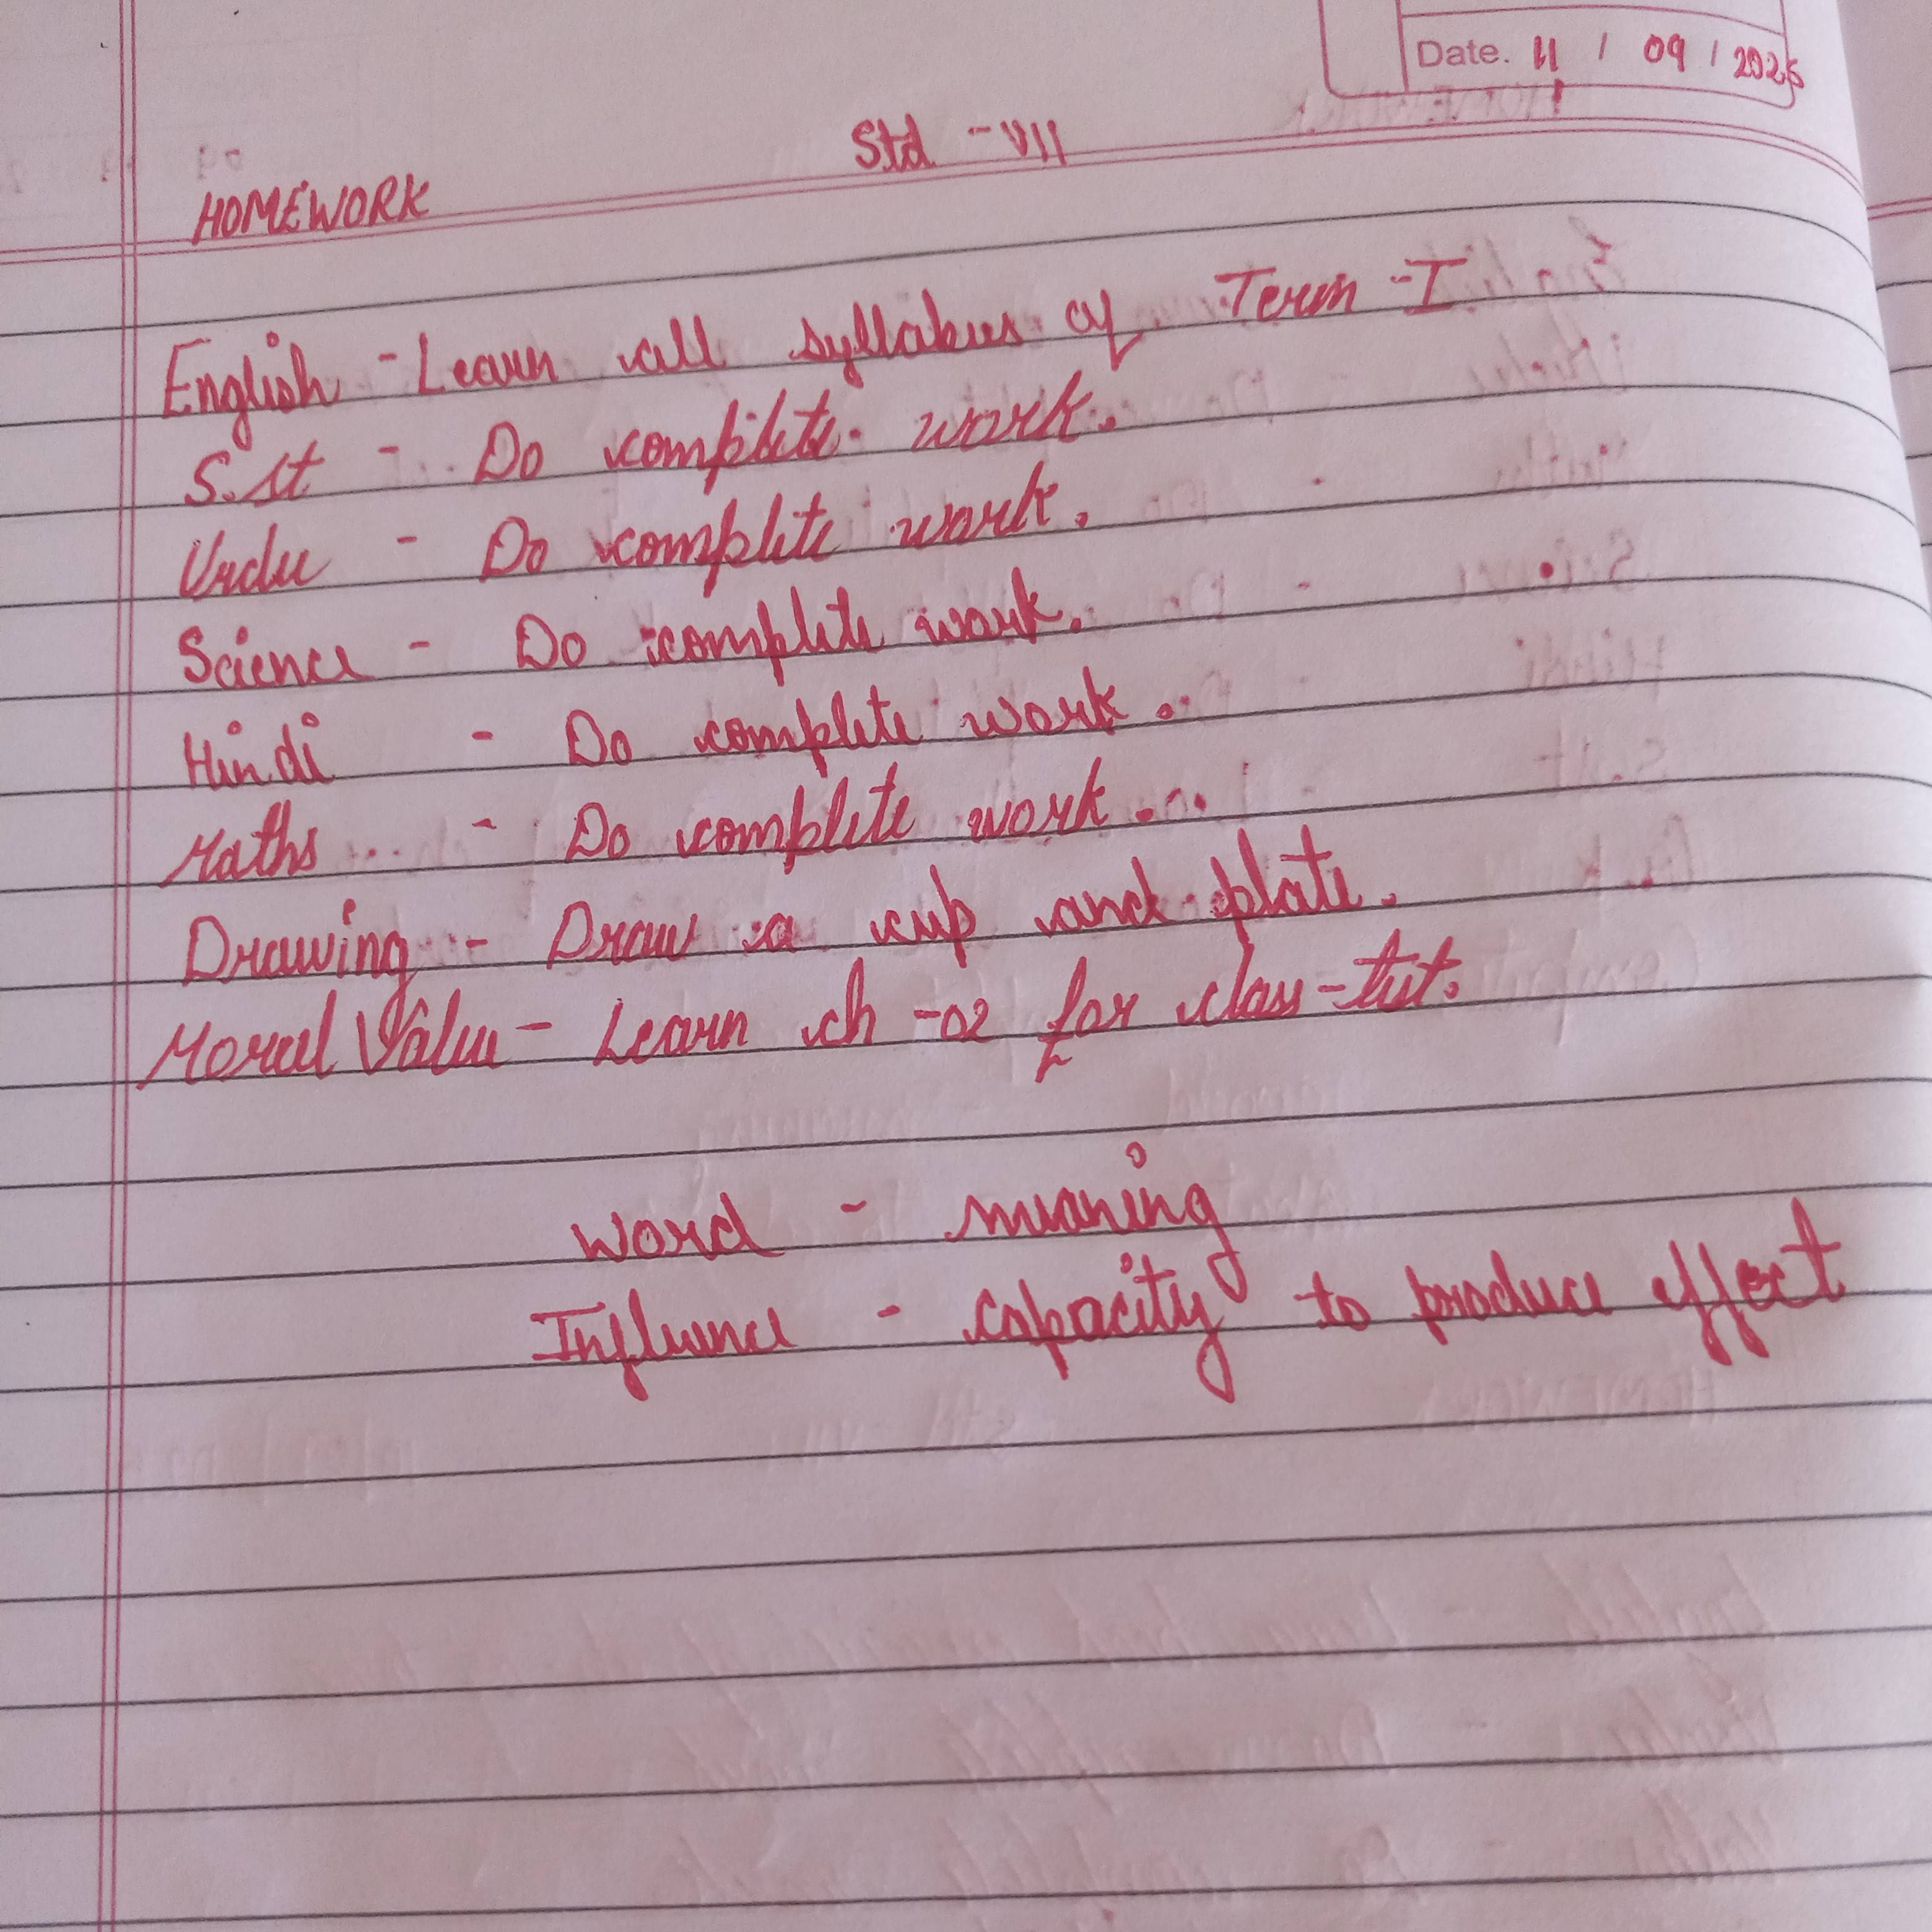 Date. 11 / 09 / 2025
Std - VII
HOMEWORK
English - Learn all syllabus of Term - I
S.st - Do complete work.
Urdu - Do complete work.
Science - Do complete work.
Hindi - Do complete work.
Maths - Do complete work.
Drawing - Draw a cup and plate.
Moral Value - Learn ch - 02 for class - test.
Word - meaning
Influence - capacity to produce effect